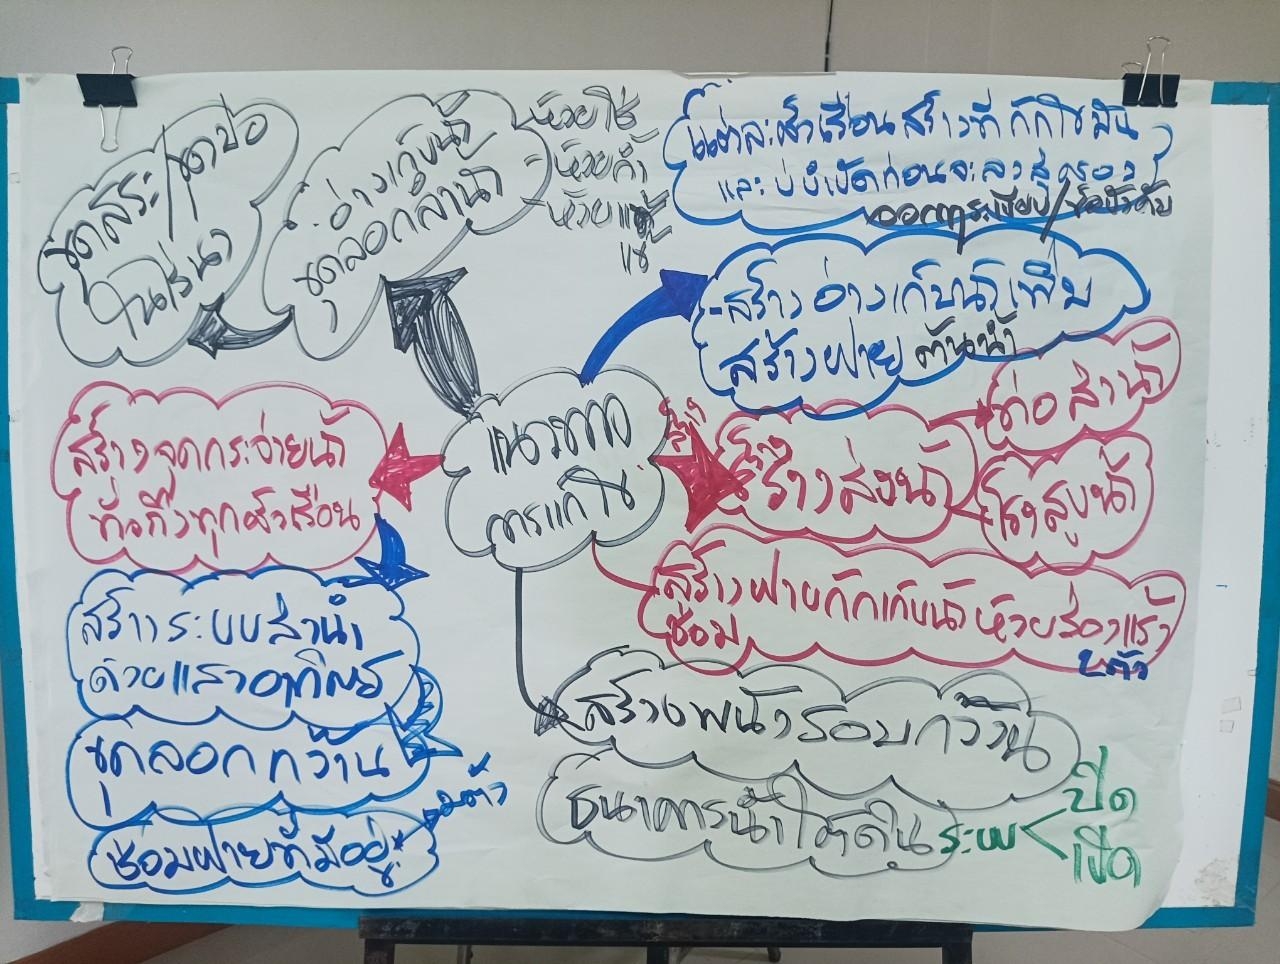 ขุดสระ/ขุดบ่อ
ในไร่นา
อ่างเก็บน้ำ
ขุดลอกลำน้ำ
-ห้วยใช่
-ห้วยก้ำ
-ห้วย
แต่ละครัวเรือนสร้างที่ดักไขมัน
และบ่อบำบัดก่อนจะลงสู่คลอง
ออกกฎระเบียบ/ข้อบังคับ
-สร้างอ่างเก็บน้ำเพิ่ม
สร้างฝายต้นน้ำ
แนวทาง
การแก้ไข
สร้างจุดกระจายน้ำ
ทั่วถึงทุกครัวเรือน
ส่งน้ำ
ท่อส่งน้ำ
โรงสูบน้ำ
สร้างฝายกักเก็บน้ำห้วยร่อง
ซ่อม
สร้างระบบส่งน้ำ
ด้วยแสงอาทิตย์
ขุดลอกกว๊าน
ซ่อมฝายที่มีอยู่
สร้างพนังรอบกว๊าน
ธนาคารน้ำใต้ดิน ระบบ
ปิด
เปิด